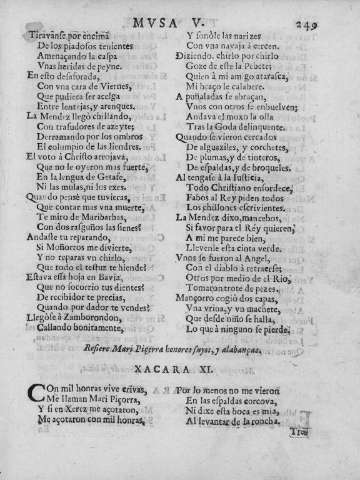 MVSA V.
249
Tiravanse por encima
De los piadosos tenientes
Amenaçando la caspa
Vnas heridas de peyne.
En esto desaforada,
Con vna cara de Viernes,
Que pudiera ser acelga
Entre lentejas, y arenques.
La Mendez llegò chillando,
Con trasudores de azeyte;
Derramando por los ombros
El columpio de las liendres.
El voto à Christo arrojava,
Que no le oyeron mas fuerte,
En la lengua de Getafe,
Ni las mulas, ni los exes.
Quando pensè que tuvieras,
Que contar mas vna muerte,
Te miro de Maribarbas,
Con dos rasguños las sienes?
Andaste tu reparando,
Si Moñorros me divierte,
Y no reparas vn chirlo,
Que todo el testuz te hiende?
Estava essa hoja en Bavia,
Que no socorrio tus dientes?
De recibidor te precias,
Quando por dador te vendes?
Llegòse à Zamborondon,
Callando bonitamente,
Y sonòle las narizes
Con vna navaja à cercen.
Diziendo, chirlo por chirlo
Goze de este la Pebete;
Quien à mi am go atarasca,
Mi braço le calabere.
A puñaladas se abraçan,
Vnos con otros se enbuelven;
Andava el moxo la olla
Tras la Goda delinquente.
Quando se vieron cercados
De alguaziles, y corchetes,
De plumas, y de tinteros,
De espaldas, y de broqueles.
Al tengase à la Iusticia,
Todo Christiano ensordece,
Fabos al Rey piden todos
Los chillones escrivientes.
La Mendez dixo, mancebos,
Si favor para el Rey quieren,
A mi me parece bien,
Llevenle esta cinta verde.
Vnos se fueron al Angel,
Con el diablo à retraerse;
Otros por medio de el Rio,
Tomaron trote de pezes.
Mangorro cogiò dos capas,
Vna vrina, y vn machete,
Que desde niño se halla,
Lo que à ninguno se pierde.
Refiere Mari Pizorra honores suyos, y alabanças.
XACARA XI.
Con mil honras vive crivas,
Me llaman Mari Pizorra,
Y si en Xerez me açotaron,
Me açotaron con mil honras,
Por lo menos no me vieron
En las espaldas corcova,
Ni dixe esta boca es mia,
Al levantar de la roncha.